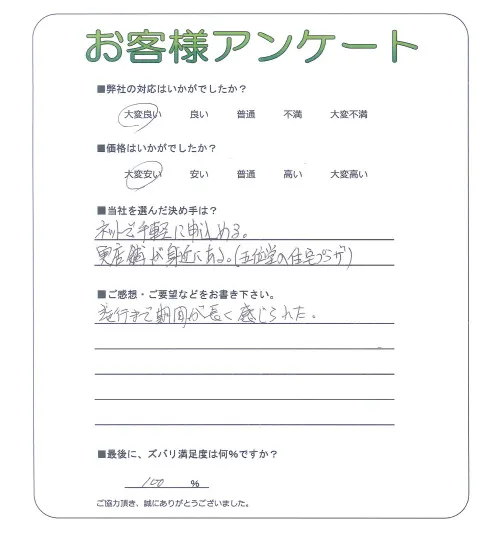 お客様アンケート
■弊社の対応はいかがでしたか？
大変良い 良い 普通 不満 大変不満
■価格はいかがでしたか？
大変安い 安い 普通 高い 大変高い
■当社を選んだ決め手は？
ネットで手軽に申込める。
実店舗が身近にある。(五位堂の住宅プラザ)
■ご感想・ご要望などをお書き下さい。
施行まで期間が長く感じられた。
■最後に、ズバリ満足度は何％ですか？
100 %
ご協力頂き、誠にありがとうございました。